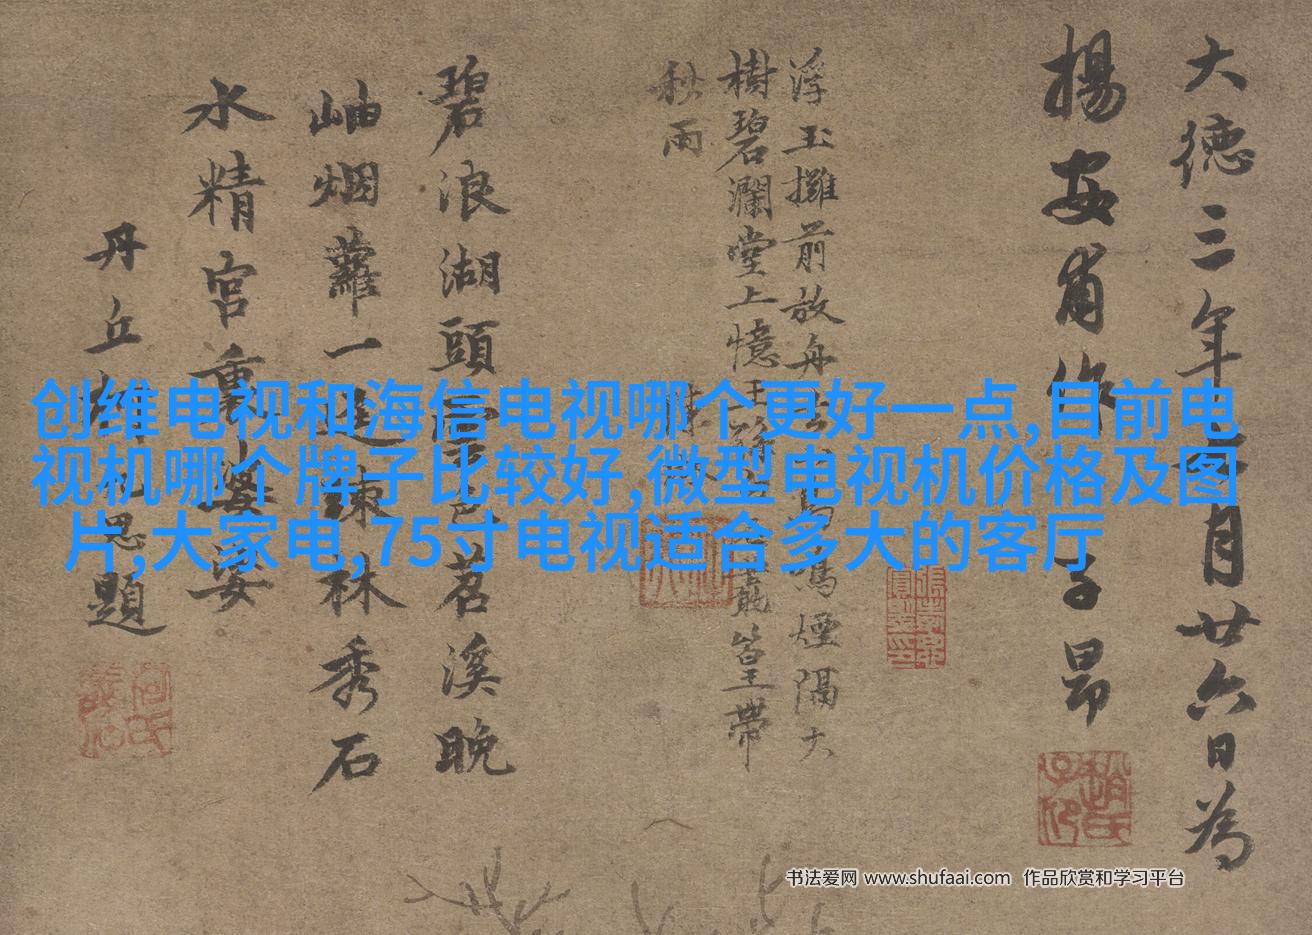 大德三年月廿六日為
揚安甫作子昂
浮玉攤前放舟煙隔大
樹碧瀾堂上憶王篁帶
秋雨
碧浪湖頭苕溪晚
岫烟蘿一逕疎林秀石
水精宮裏婆娑
丹丘柯九思題
创维电视和海信电视哪个更好一点,目前电
视机哪个牌子比较好,微型电视机价格及图
片,大家电,75寸电视适合多大的客厅
书法爱网 www.shufaai.com 作品欣赏和学习平台